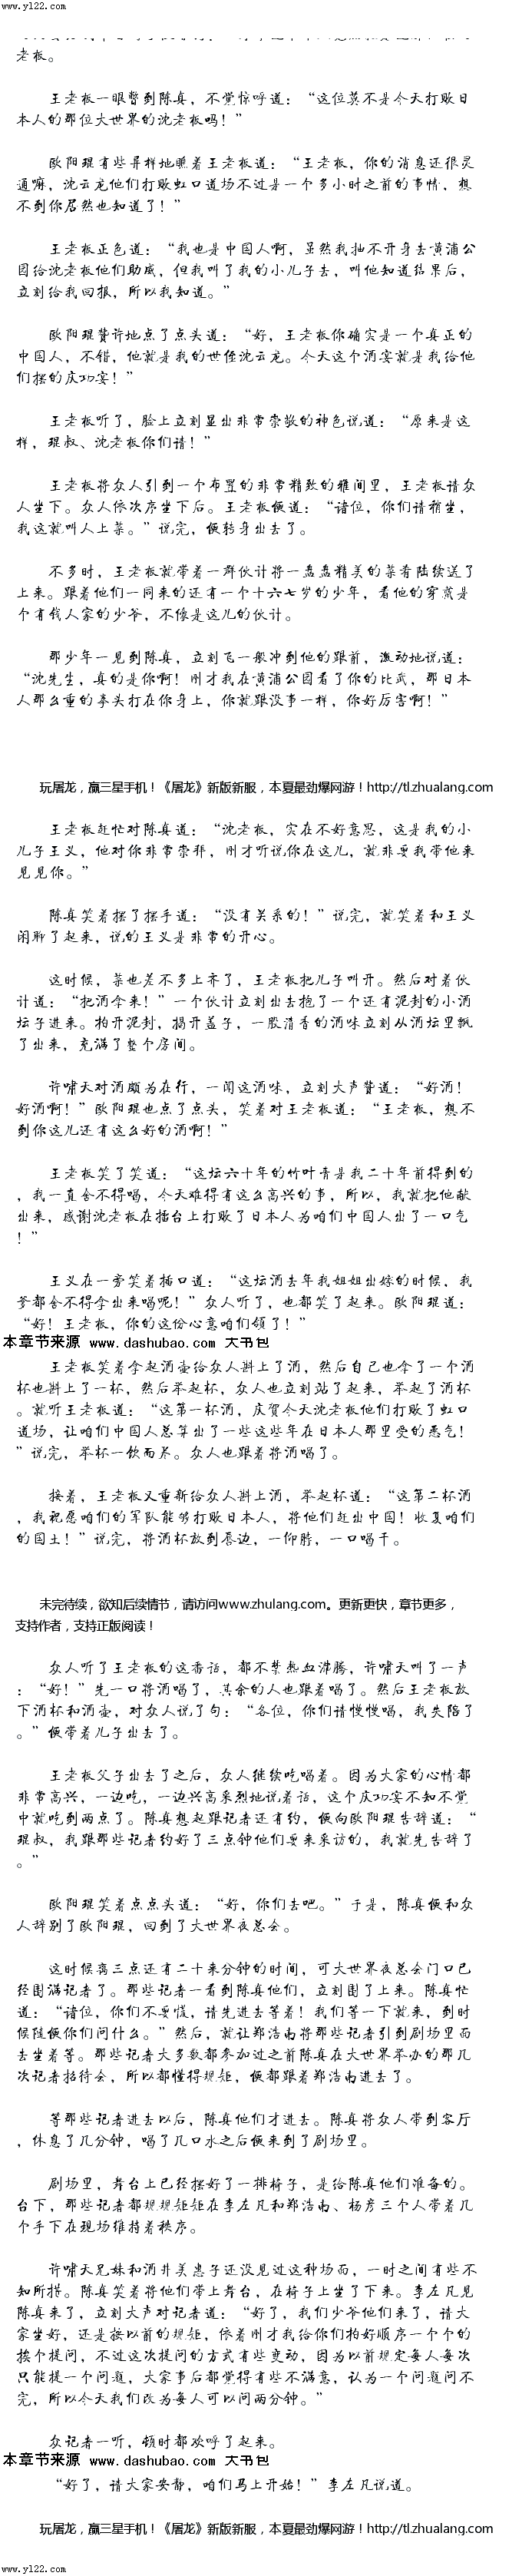 www.yl22.com
老板。
王老板一眼瞥到陈真，不觉惊呼道：“这位莫不是今天打败日
本人的那位大世界的沈老板吗！”
欧阳琨有些异样地瞧着王老板道：“王老板，你的消息还很灵
通嘛，沈云龙他们打败虹口道场不过是一个多小时之前的事情，想
不到你居然也知道了！”
王老板正色道：“我也是中国人啊，虽然我抽不开身去黄浦公
园给沈老板他们助威，但我叫了我的小儿子去，叫他知道结果后，
立刻给我回报，所以我知道。”
欧阳琨赞许地点了点头道：“好，王老板你确实是一个真正的
中国人，不错，他就是我的世侄沈云龙。今天这个酒宴就是我给他
们摆的庆功宴！”
王老板听了，脸上立刻显出非常崇敬的神色说道：“原来是这
样，琨叔、沈老板你们请！”
王老板将众人引到一个布置的非常精致的雅间里，王老板请众
人坐下。众人依次序坐下后。王老板便道：“诸位，你们请稍坐，
我这就叫人上菜。”说完，便转身出去了。
不多时，王老板就带着一群伙计将一盘盘精美的菜肴陆续送了
上来。跟着他们一同来的还有一个十六七岁的少年，看他的穿戴是
个有钱人家的少爷，不像是这儿的伙计。
那少年一见到陈真，立刻飞一般冲到他的跟前，激动地说道：
“沈先生，真的是你啊！刚才我在黄浦公园看了你的比武，那日本
人那么重的拳头打在你身上，你就跟没事一样，你好厉害啊！”
玩屠龙，赢三星手机！《屠龙》新版新服，本夏最劲爆网游！http://tl.zhulang.com
王老板赶忙对陈真道：“沈老板，实在不好意思，这是我的小
儿子王义，他对你非常崇拜，刚才听说你在这儿，就非要我带他来
见见你。”
陈真笑着摆了摆手道：“没有关系的！”说完，就笑着和王义
闲聊了起来，说的王义是非常的开心。
这时候，菜也差不多上齐了，王老板把儿子叫开。然后对着伙
计道：“把酒拿来！”一个伙计立刻出去抱了一个还有泥封的小酒
坛子进来。拍开泥封，揭开盖子，一股清香的酒味立刻从酒坛里飘
了出来，充满了整个房间。
许啸天对酒颇为在行，一闻这酒味，立刻大声赞道：“好酒！
好酒啊！”欧阳琨也点了点头，笑着对王老板道：“王老板，想不
到你这儿还有这么好的酒啊！”
王老板笑了笑道：“这坛六十年的竹叶青是我二十年前得到的
，我一直舍不得喝，今天难得有这么高兴的事，所以，我就把他献
出来，感谢沈老板在擂台上打败了日本人为咱们中国人出了一口气
！”
王义在一旁笑着插口道：“这坛酒去年我姐姐出嫁的时候，我
爹都舍不得拿出来喝呢！”众人听了，也都笑了起来。欧阳琨道：
“好！王老板，你的这份心意咱们领了！”
本章节来源 www.dashubao.com 大书包
王老板笑着拿起酒壶给众人斟上了酒，然后自己也拿了一个酒
杯也斟上了一杯，然后举起杯，众人也立刻站了起来，举起了酒杯
。就听王老板道：“这第一杯酒，庆贺今天沈老板他们打败了虹口
道场，让咱们中国人总算出了一些这些年在日本人那里受的恶气！
”说完，举杯一饮而尽。众人也跟着将酒喝了。
接着，王老板又重新给众人斟上酒，举起杯道：“这第二杯酒
，我祝愿咱们的军队能够打败日本人，将他们赶出中国！收复咱们
的国土！”说完，将酒杯放到唇边，一仰脖，一口喝干。
未完待续，欲知后续情节，请访问www.zhulang.com。更新更快，章节更多，
支持作者，支持正版阅读！
众人听了王老板的这番话，都不禁热血沸腾，许啸天叫了一声
：“好！”先一口将酒喝了，其余的人也跟着喝了。然后王老板放
下酒杯和酒壶，对众人说了句：“各位，你们请慢慢喝，我失陪了
。”便带着儿子出去了。
王老板父子出去了之后，众人继续吃喝着。因为大家的心情都
非常高兴，一边吃，一边兴高采烈地说着话，这个庆功宴不知不觉
中就吃到两点了。陈真想起跟记者还有约，便向欧阳琨告辞道：“
琨叔，我跟那些记者约好了三点钟他们要来采访的，我就先告辞了
。”
欧阳琨笑着点点头道：“好，你们去吧。”于是，陈真便和众
人辞别了欧阳琨，回到了大世界夜总会。
这时候离三点还有二十来分钟的时间，可大世界夜总会门口已
经围满记者了。那些记者一看到陈真他们，立刻围了上来。陈真忙
道：“诸位，你们不要慌，请先进去等着！我们等一下就来，到时
候随便你们问什么。”然后，就让郑浩南将那些记者引到剧场里面
去坐着等。那些记者大多数都参加过之前陈真在大世界举办的那几
次记者招待会，所以都懂得规矩，便都跟着郑浩南进去了。
等那些记者进去以后，陈真他们才进去。陈真将众人带到客厅
，休息了几分钟，喝了几口水之后便来到了剧场里。
剧场里，舞台上已经摆好了一排椅子，是给陈真他们准备的。
台下，那些记者都规规矩矩在李左凡和郑浩南、杨彦三个人带着几
个手下在现场维持着秩序。
许啸天兄妹和酒井美惠子还没见过这种场面，一时之间有些不
知所措。陈真笑着将他们带上舞台，在椅子上坐了下来。李左凡见
陈真来了，立刻大声对记者道：“好了，我们少爷他们来了，请大
家坐好，还是按以前的规矩，依着刚才我给你们拍好顺序一个个的
挨个提问，不过这次提问的方式有些变动，因为以前规定每人每次
只能提一个问题，大家事后都觉得有些不满意，认为一个问题问不
完，所以今天我们改为每人可以问两分钟。”
众记者一听，顿时都欢呼了起来。
本章节来源 www.dashubao.com 大书包
“好了，请大家安静，咱们马上开始！”李左凡说道。
玩屠龙，赢三星手机！《屠龙》新版新服，本夏最劲爆网游！http://tl.zhulang.com
www.yl22.com